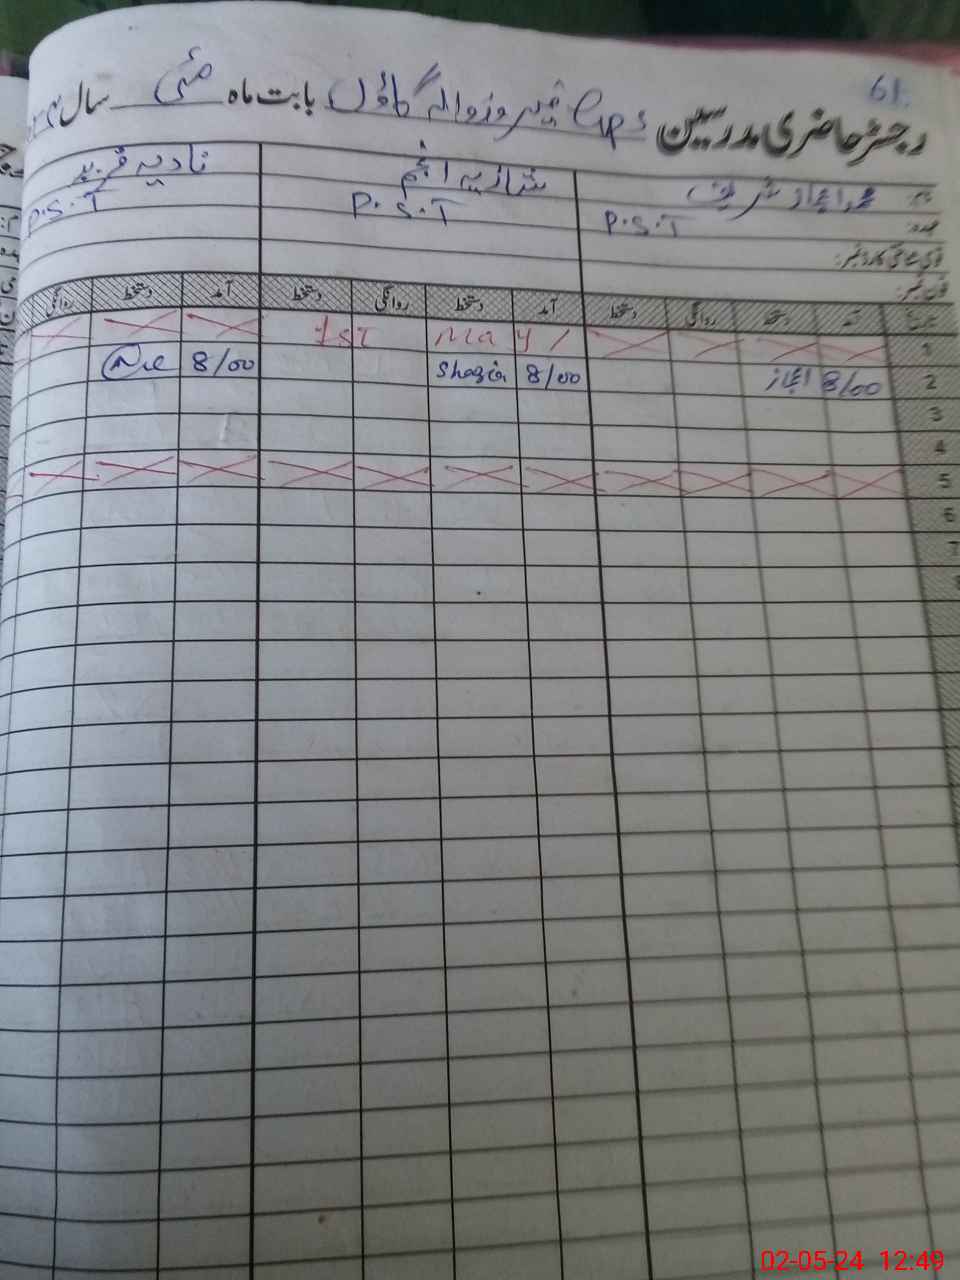 61
رجسٹر حاضری مدرسین GPS فیروزوالہ گاؤں بابت ماہ مئی سال
نام: محمد اعجاز شریف شازیہ انجم نادیہ فرید
عہدہ: P.S.T P.S.T P.S.T
قومی شناختی کارڈ نمبر:
فون نمبر:
آمد دستخط روانگی دستخط آمد دستخط روانگی دستخط آمد دستخط روانگی
1 1st May
2 8/00 اعجاز 8/00 Shazia 8/00
3
4
5
6
7
02-05-24 12:49